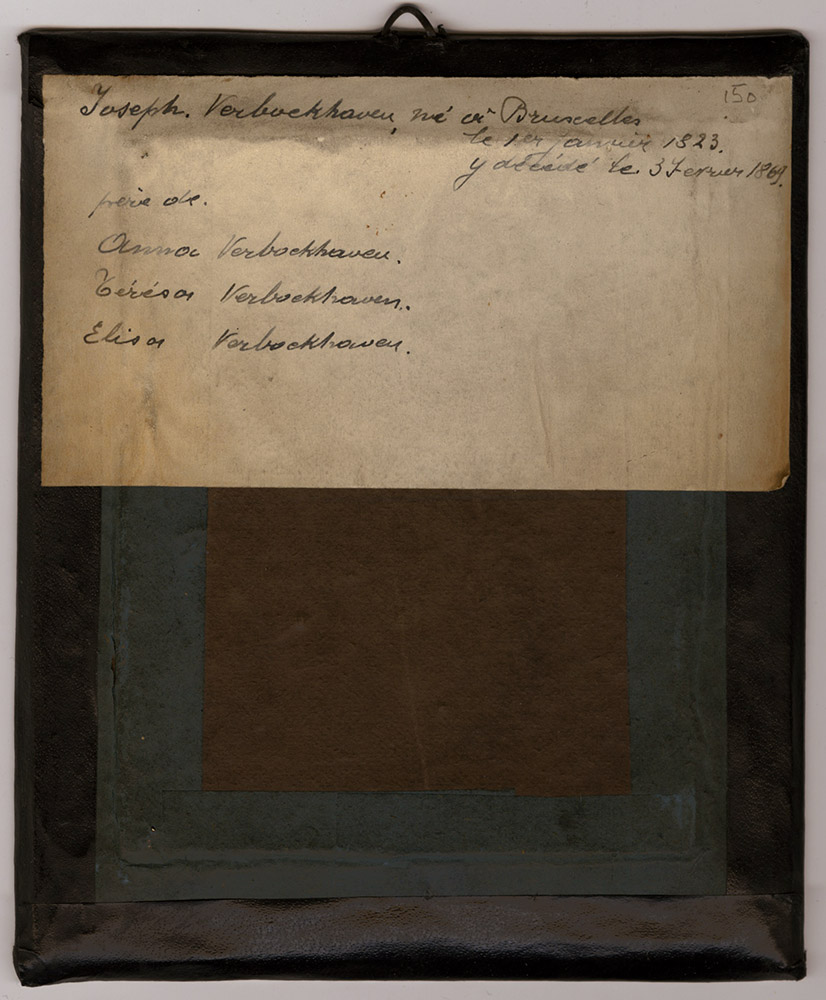 150
Joseph. Verbockhaven, né à Bruxelles
le 1er janvier 1823.
y décédé le 3 Fevrier 1869.
père de.
Anna Verbockhaven.
Térésa Verbockhaven.
Elisa Verbockhaven.